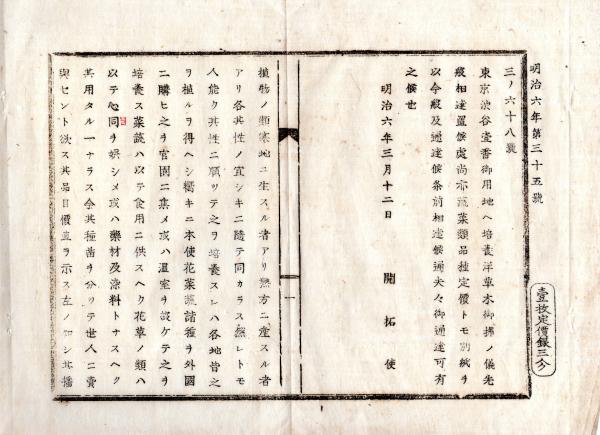 明治六年第三十五號
三ノ六十八號
東京渋谷壹番御用地ヘ培養洋草木御拂ノ儀先
般相達置候處尚亦蔬菜類品種定價トモ別紙ヲ
以今般及通達候條前相達候通夫々御通達可有
之候也
明治六年三月十二日　開拓使
壹枚定價錄三分
植物ノ類寒地ニ生スル者アリ熱方ニ産スル者
アリ各其性ノ宜シキニ隨テ同カラス然レトモ
人能ク其性ニ順ツテ之ヲ培養スレハ各地皆之
ヲ植ルヲ得ヘシ曩キニ本使花菜蔬諸種ヲ外國
ニ購ヒ之ヲ官園ニ集メ或ハ温室ヲ設ケテ之ヲ
培養ス菜蔬ハ以テ食用ニ供スヘク花草ノ類ハ
以テ心同ヲ娯シメ或ハ藥材及塗料トナスヘク
其用タル一ナラス今其種苗ヲ分リテ世人ニ賣
與セント欲ス其品目價直ヲ示ス左ノ如シ其播